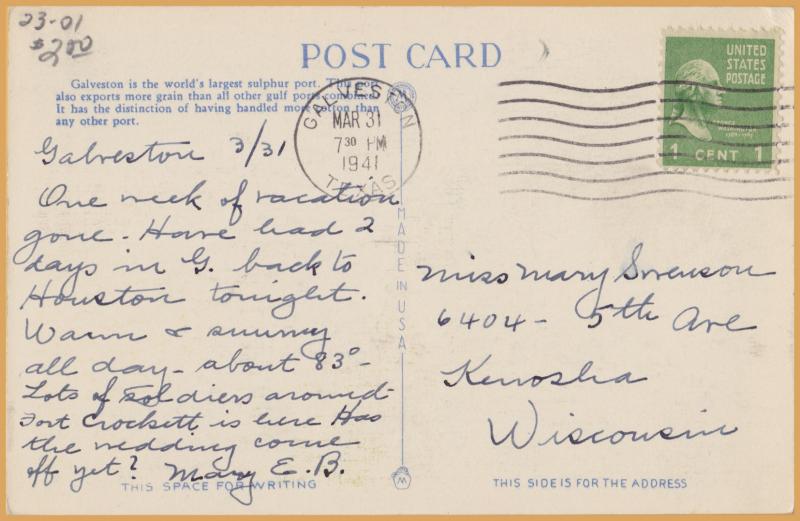 23-01
$2.00
POST CARD
Galveston is the world's largest sulphur port. This port
also exports more grain than all other gulf ports combined.
It has the distinction of having handled more cotton than
any other port.
GALVESTON
MAR 31
7 30 PM
1941
TEXAS
UNITED
STATES
POSTAGE
WASHINGTON
1 CENT 1
Galveston 3/31
One week of vacation
gone - Have had 2
days in G. back to
Houston tonight.
Warm & sunny
all day - about 83° -
Lots of soldiers around
Fort Crockett is here Has
the wedding come
off yet? Mary E. B.
MADE IN USA
Miss Mary Swenson
6404 - 5th Ave
Kenosha
Wisconsin
THIS SPACE FOR WRITING
THIS SIDE IS FOR THE ADDRESS